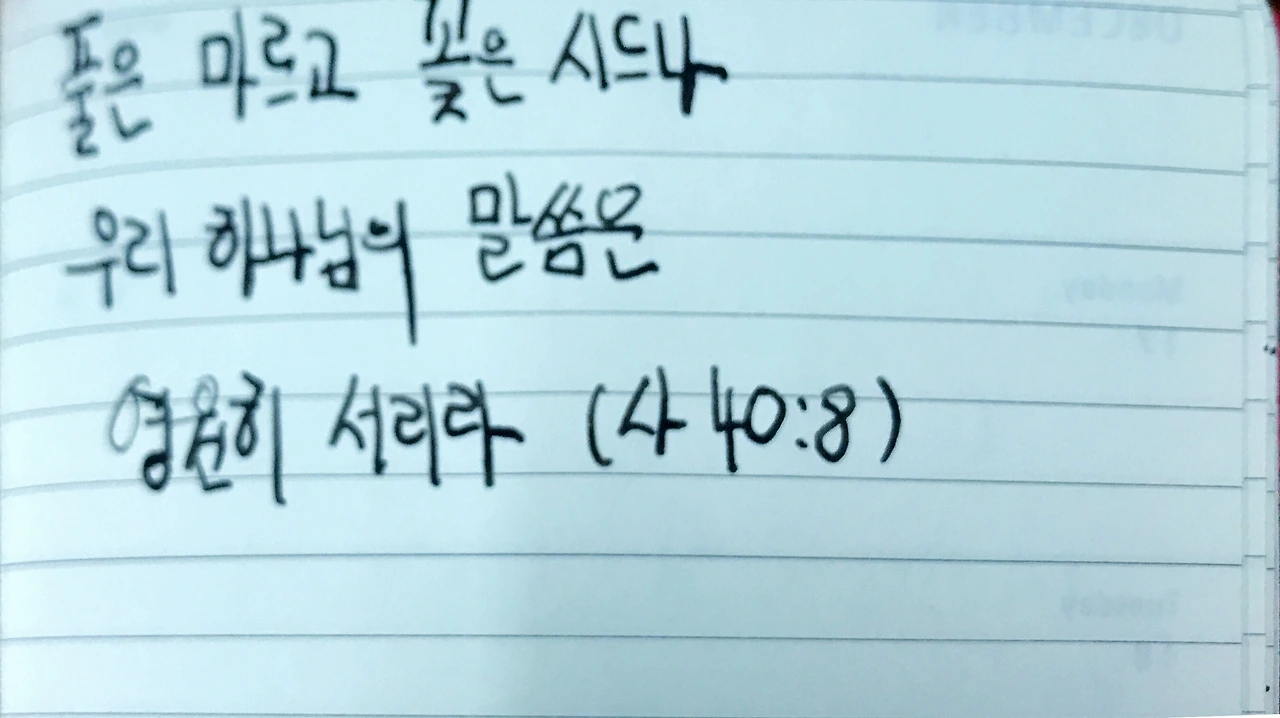 풀은 마르고 꽃은 시드나
우리 하나님의 말씀은
영원히 서리라 (사 40:8)
DECEMBER
Monday
17
Tuesday
18